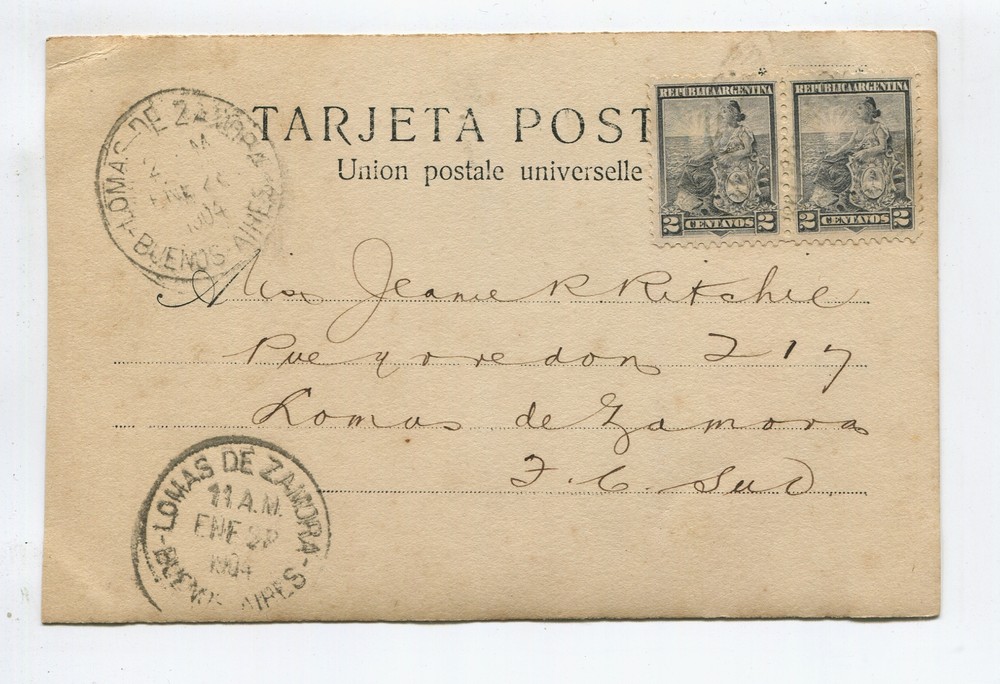 TARJETA POST
Union postale universelle
REPÚBLICA ARGENTINA
2 CENTAVOS 2
REPÚBLICA ARGENTINA
2 CENTAVOS 2
LOMAS DE ZAMORA
ENE
1904
BUENOS AIRES
Miss Jeanie R. Ritchie
217
Lomas de Zamora
F. C. Sud.
LOMAS DE ZAMORA
11 A.M.
ENE
1904
BUENOS AIRES